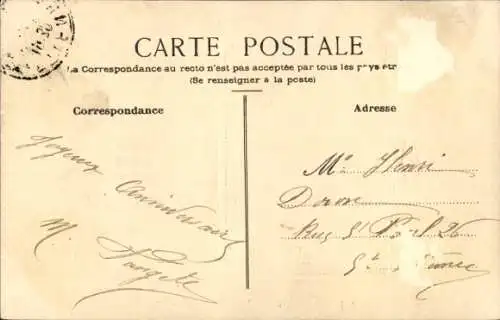 CARTE POSTALE
La Correspondance au recto n'est pas acceptée par tous les pays étr
(Se renseigner à la poste)
Correspondance
Adresse
Joyeux
Anniversaire
M.
Mr Henri
Rue St Paul 26
St